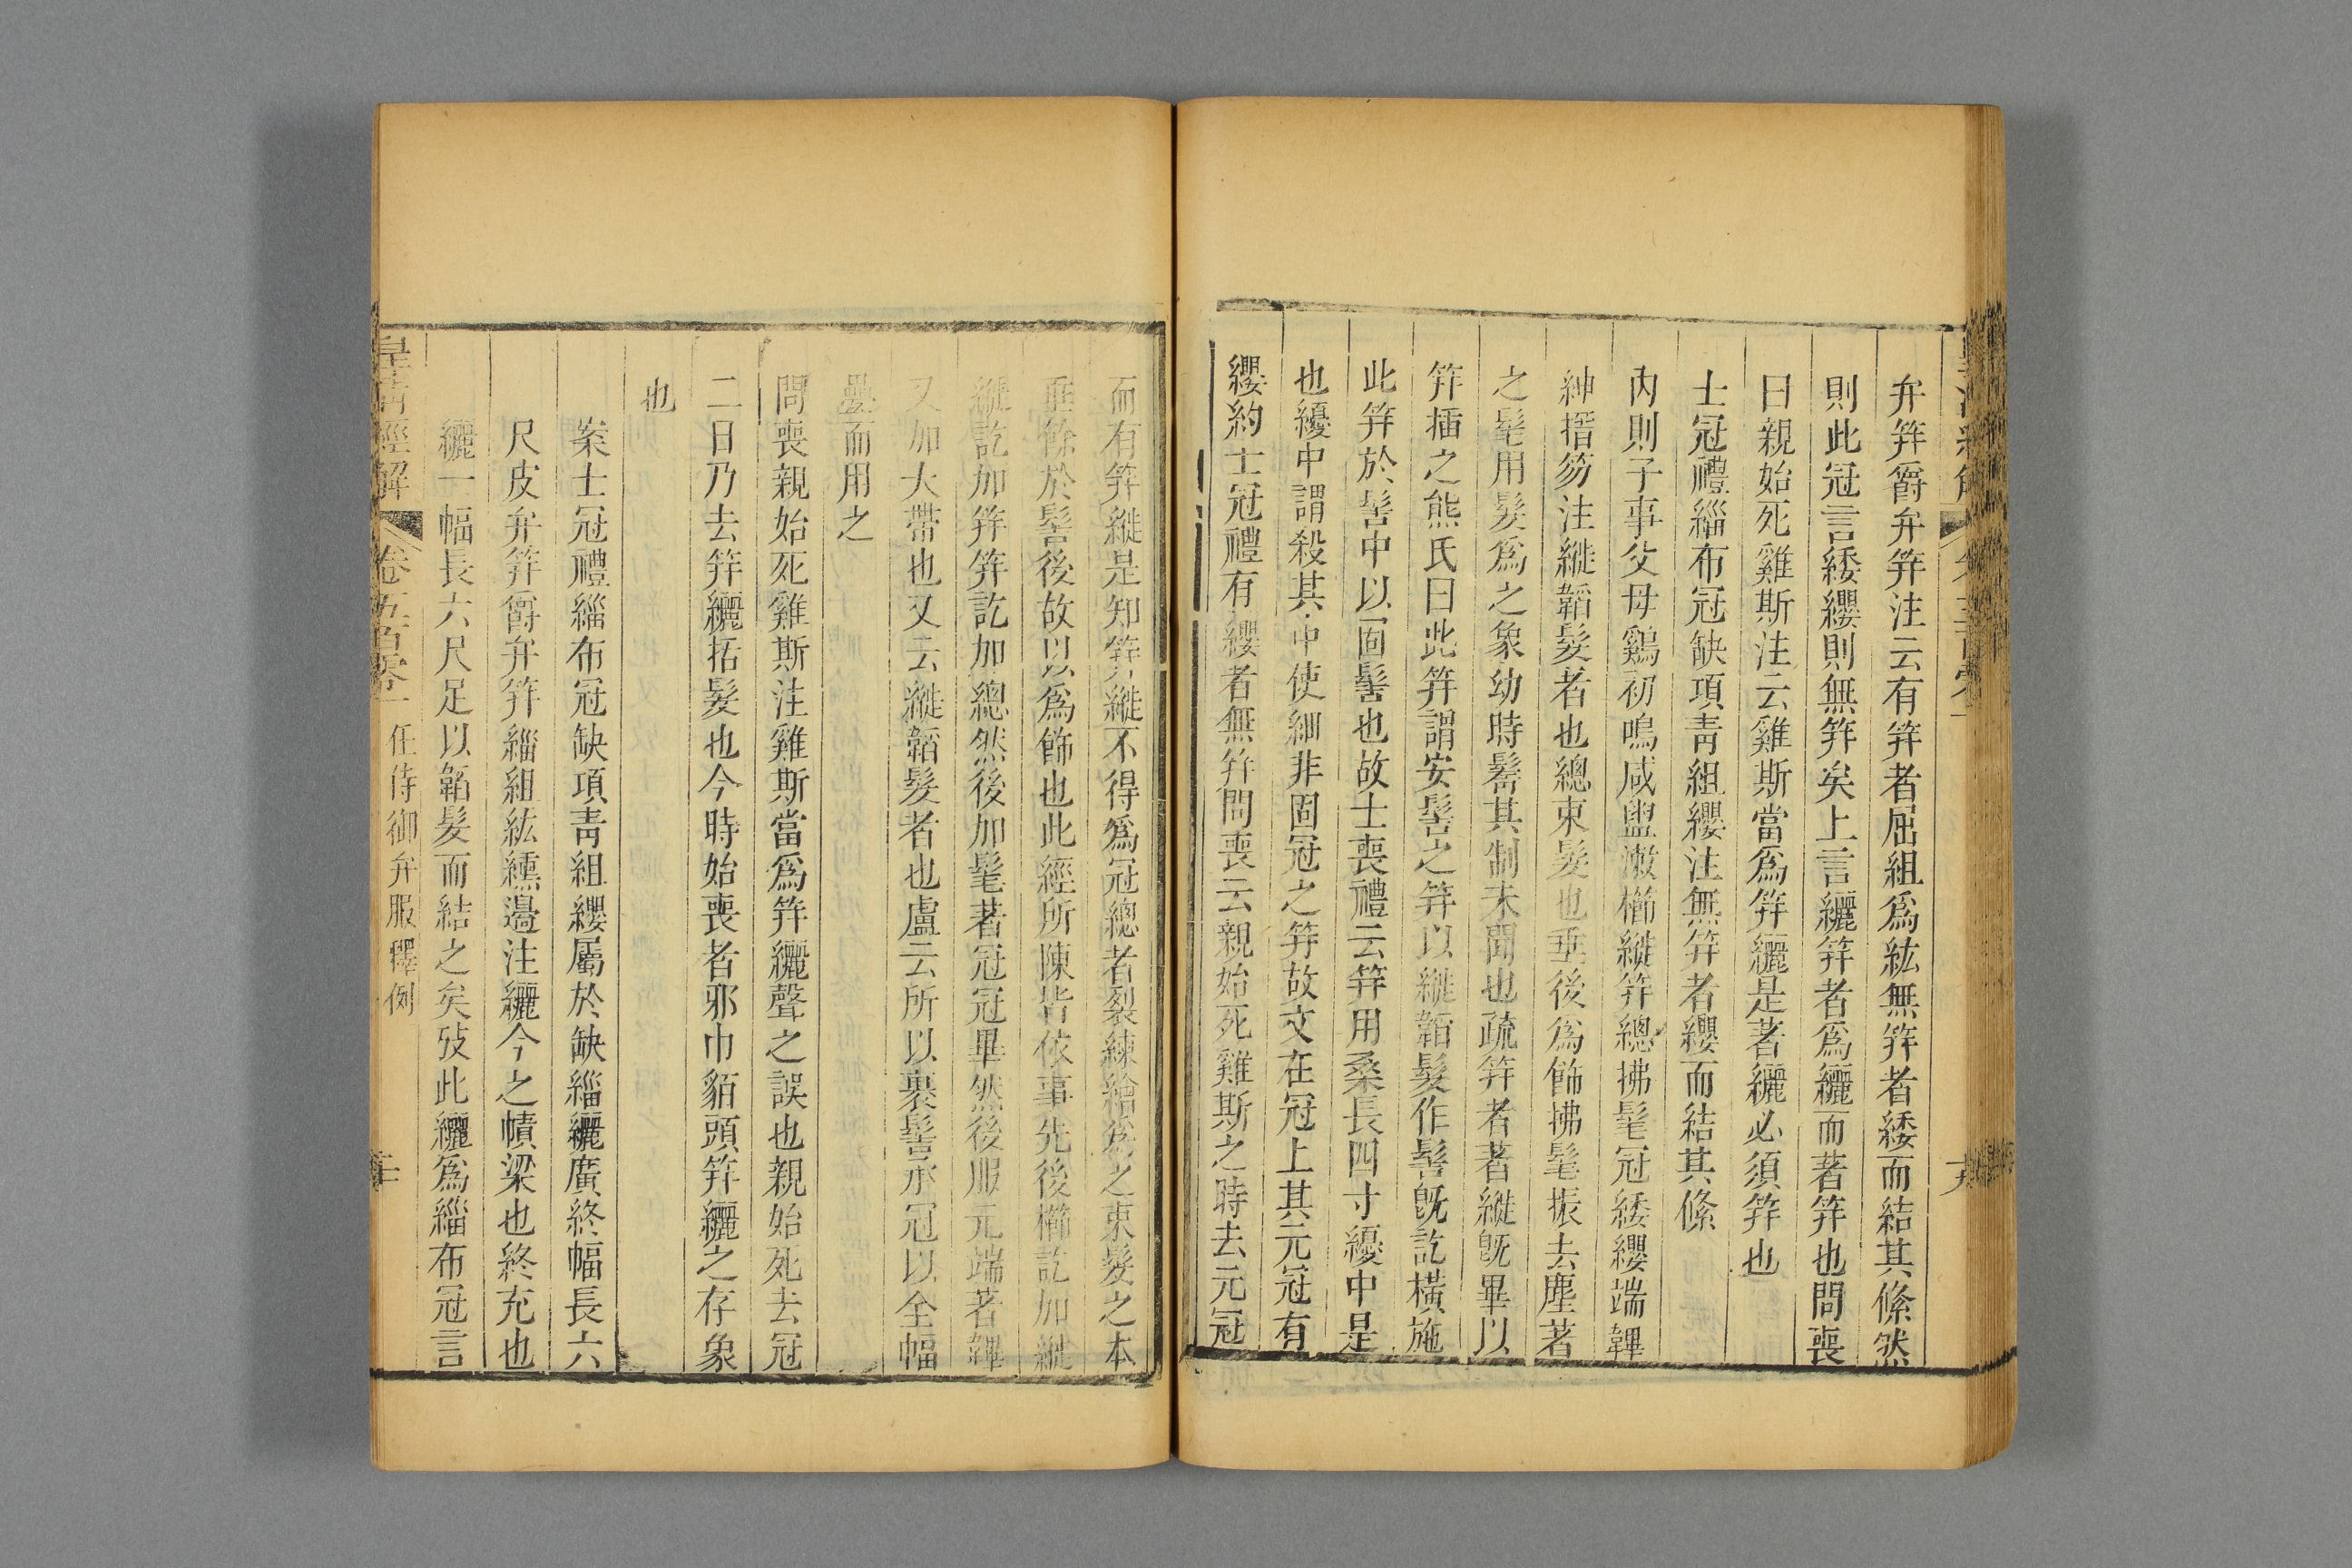 弁笄爵弁笄注云有笄者屈組爲紘無笄者緌而結其絛然
則此冠言緌纓則無笄矣上言纚笄者爲纚而著笄也問喪
曰親始死雞斯注云雞斯當爲笄纚是著纚必須笄也
士冠禮緇布冠缺項青組纓注無笄者纓而結其絛
內則子事父母鷄初鳴咸盥漱櫛縰笄總拂髦冠緌纓端韠
紳搢笏注縰韜髮者也總束髮也垂後爲飾拂髦振去塵著
之髦用髮爲之象幼時鬌其制未聞也疏笄者著縰旣畢以
笄插之熊氏曰此笄謂安髻之笄以縰韜髮作髻旣訖橫施
此笄於髻中以固髻也故士喪禮云笄用桑長四寸纋中是
也纋中謂殺其中使細非固冠之笄故文在冠上其元冠有
纓約士冠禮有纓者無笄問喪云親始死雞斯之時去元冠
而有笄縰是知笄縰不得爲冠總者裂練繒爲之束髮之本
垂餘於髻後故以爲飾也此經所陳皆依事先後櫛訖加縰
縰訖加笄笄訖加總然後加髦著冠冠畢然後服元端著韠
又加大帶也又云縰韜髮者也盧云所以裹髻承冠以全幅
疊而用之
問喪親始死雞斯注雞斯當爲笄纚聲之誤也親始死去冠
二日乃去笄纚括髮也今時始喪者邪巾貊頭笄纚之存象
也
案士冠禮緇布冠缺項青組纓屬於缺緇纚廣終幅長六
尺皮弁笄爵弁笄緇組紘纁邊注纚今之幘梁也終充也
纚一幅長六尺足以韜髮而結之矣攷此纚爲緇布冠言
皇清經解
卷五百零一
任侍御弁服釋例